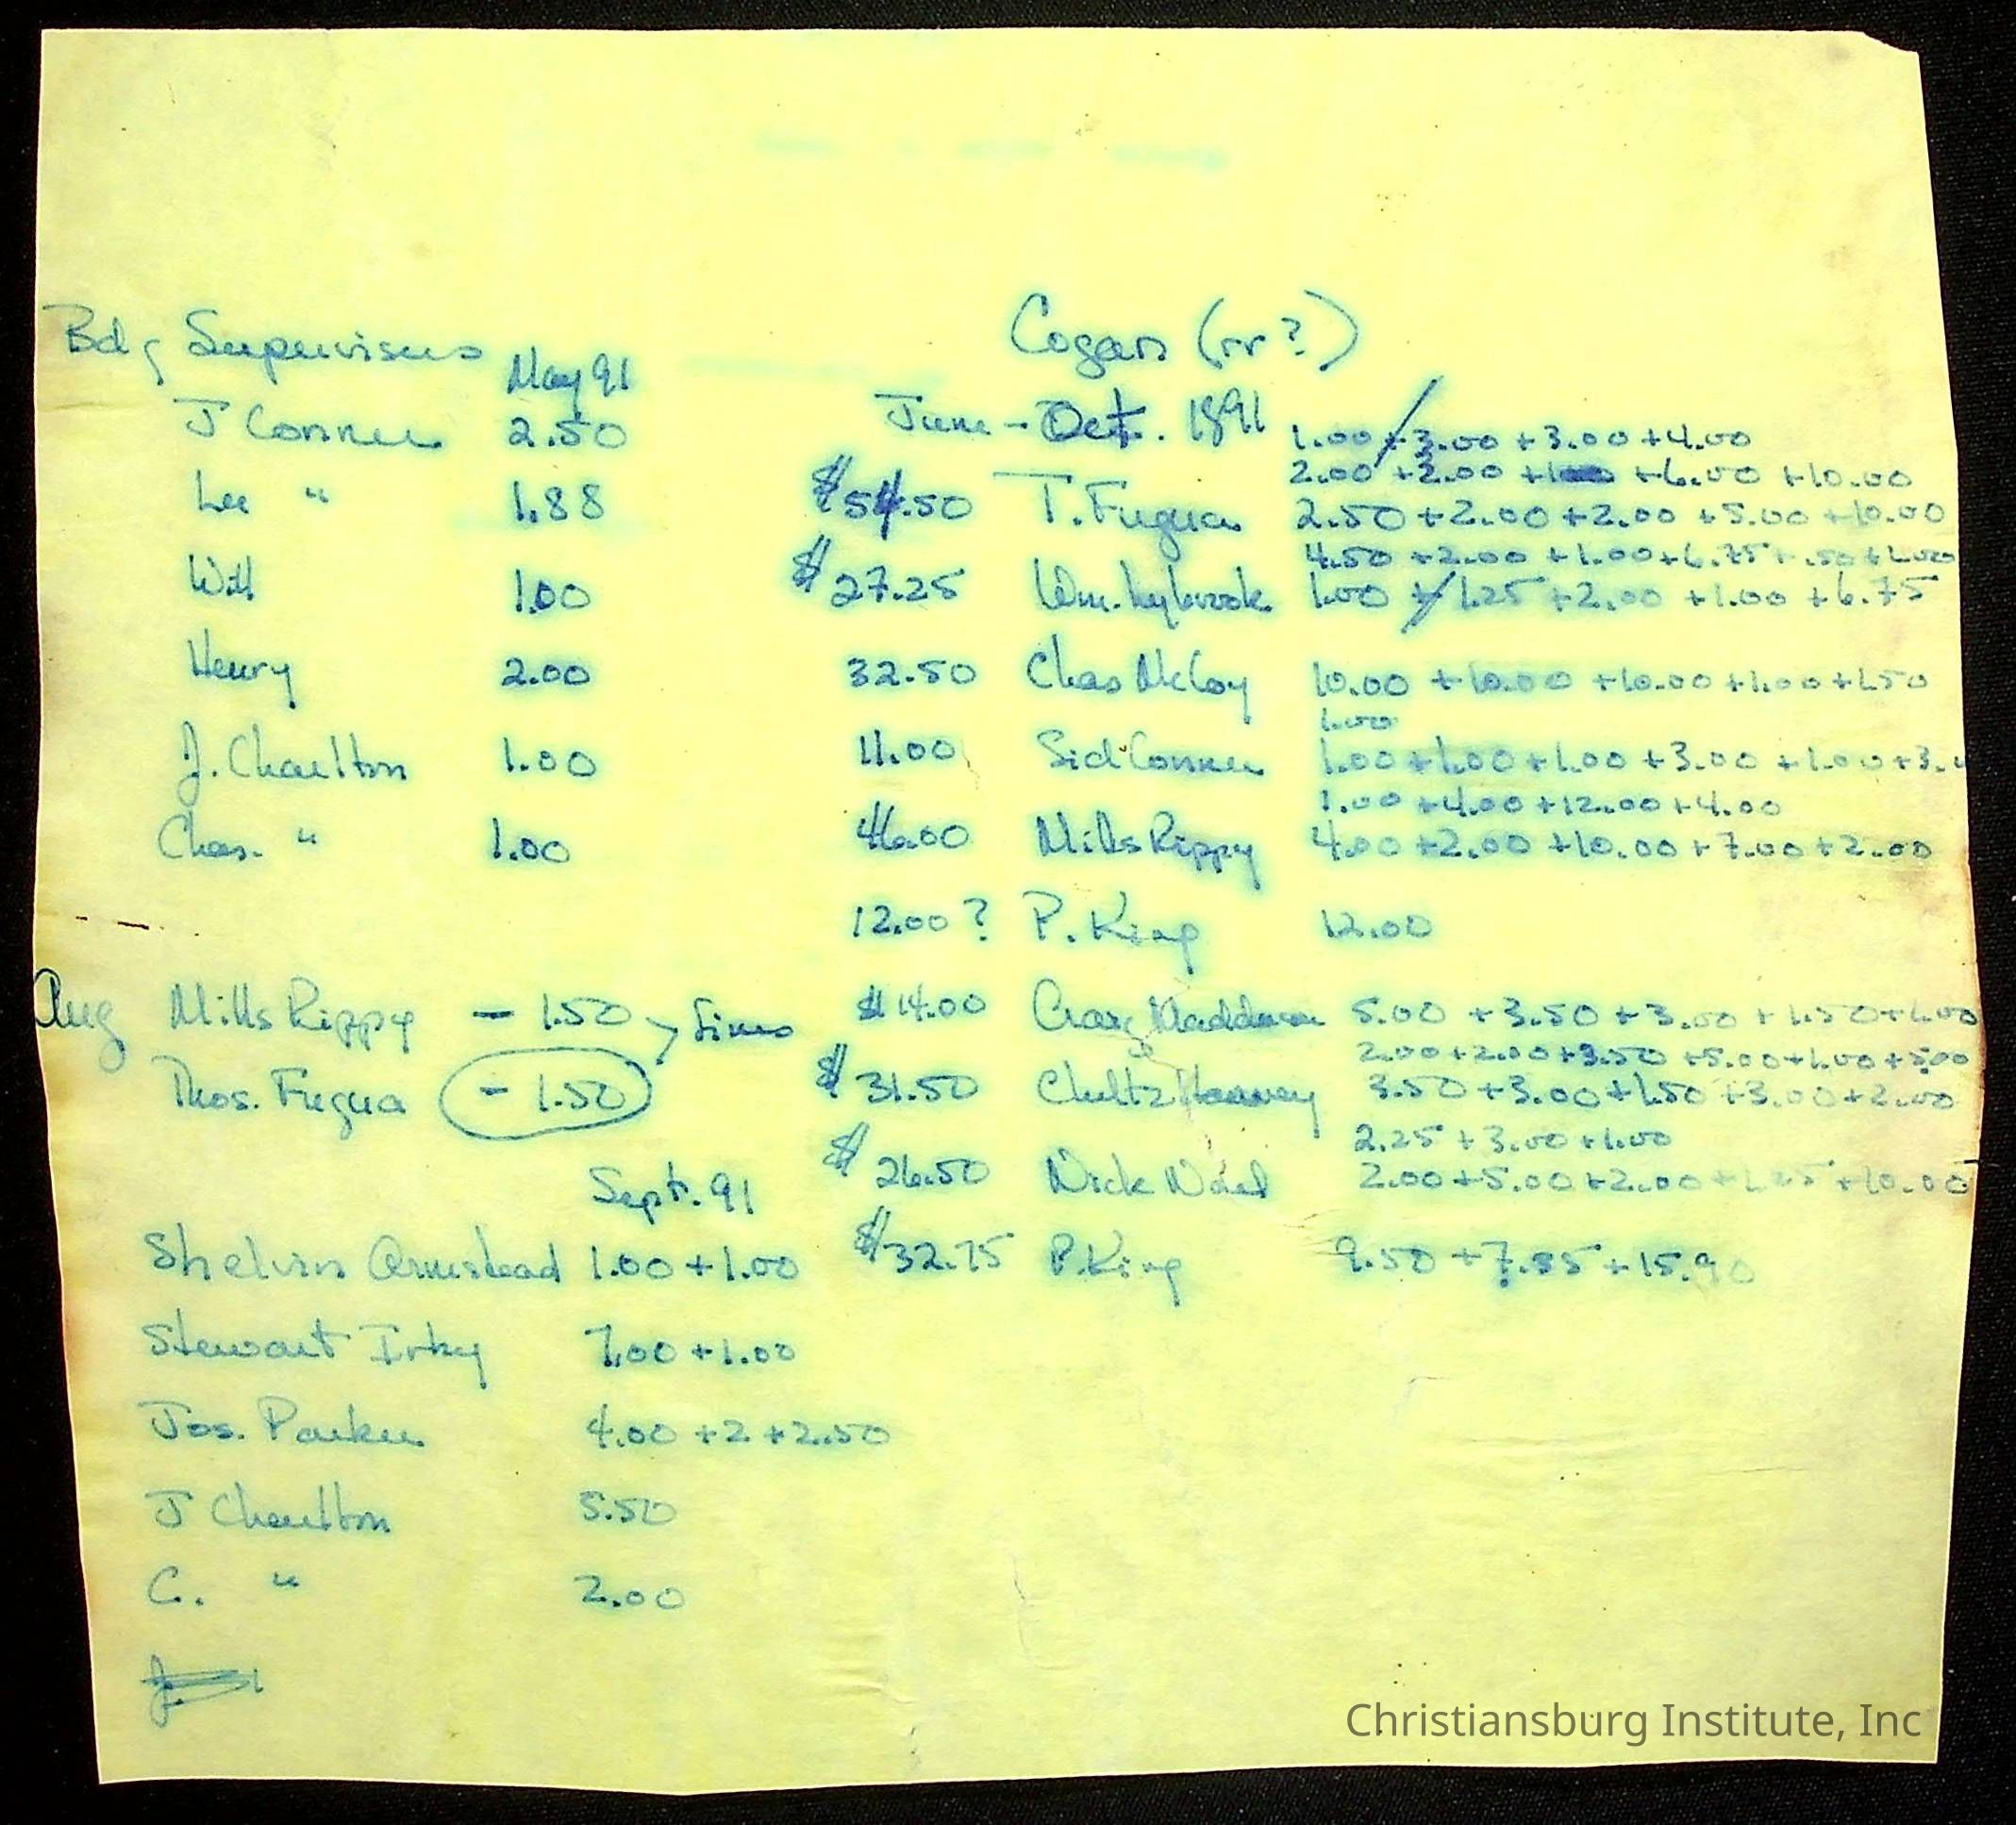 Cogan (rr?)
Bdg Supervisers
May 91
June - Oct. 1891 1.00 + 3.00 + 3.00 + 4.00
J Conner 2.50
2.00 + 2.00 + 6.00 + 10.00
Lee " 1.88 $54.50 T. Fugua 2.50 + 2.00 + 2.00 + 5.00 + 10.00
4.50 + 2.00 + 1.00 + 6.75 + .50 + 1.00
Will 1.00 $27.25 Wm. 1.00 + 1.25 + 2.00 + 1.00 + 6.75
Henry 2.00 32.50 Chas McCoy 10.00 + 10.00 + 10.00 + 1.00 + 1.50
1.00
J. Charlton 1.00 11.00 Sid Conner 1.00 + 1.00 + 1.00 + 3.00 + 1.00 + 3.
1.00 + 4.00 + 12.00 + 4.00
Chas. " 1.00 46.00 Mills Rippy 4.00 + 2.00 + 10.00 + 7.00 + 2.00
12.00? P. King 12.00
Aug Mills Rippy - 1.50 > fines $14.00 5.00 + 3.50 + 3.00 + 1.50 + 1.00
2.00 + 2.00 + 3.50 + 5.00 + 1.00 + 5.00
Thos. Fugua - 1.50 $31.50 Chultz 3.50 + 3.00 + 1.50 + 3.00 + 2.00
2.25 + 3.00 + 1.00
Sept. 91 $26.50 Nick 2.00 + 5.00 + 2.00 + 1.25 + 10.00
Shelvin Armstead 1.00 + 1.00 $32.75 P. King 9.50 + 7.35 + 15.90
Stewart Irky 7.00 + 1.00
Jos. Parker 4.00 + 2 + 2.50
J Charlton 5.50
C. " 2.00
Christiansburg Institute, Inc